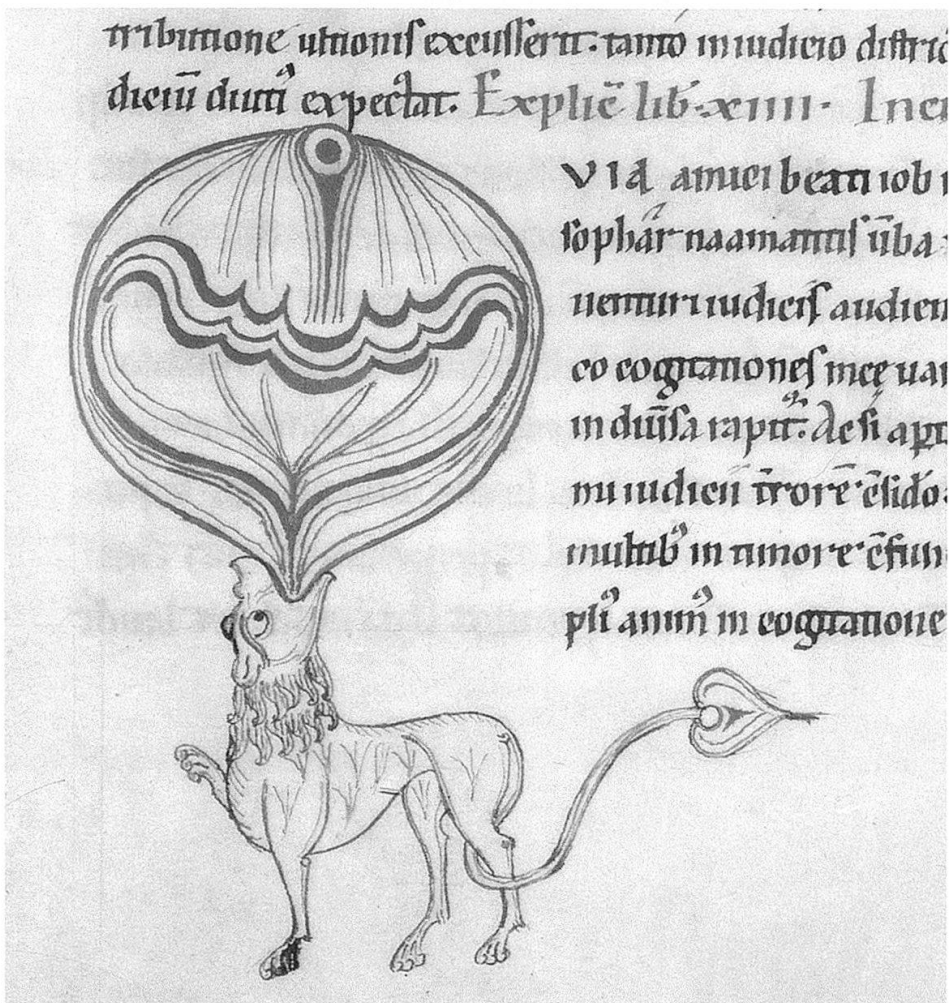 tributione ultionis excusserit. tanto in iudicio distric
diciū diutiꝰ expectat. Explic̄ lib. xiiii. Inci
VIA amici beati iob
sophar naamantis ūba
uenturi iudicis audien
co cogitationes meę uari
in diūsa rapit᷑. Ac si apt
mi iudicii t̄rorē c̄sido
multibꝰ in timore c̄fun
plꝰ animꝰ in cogitatione